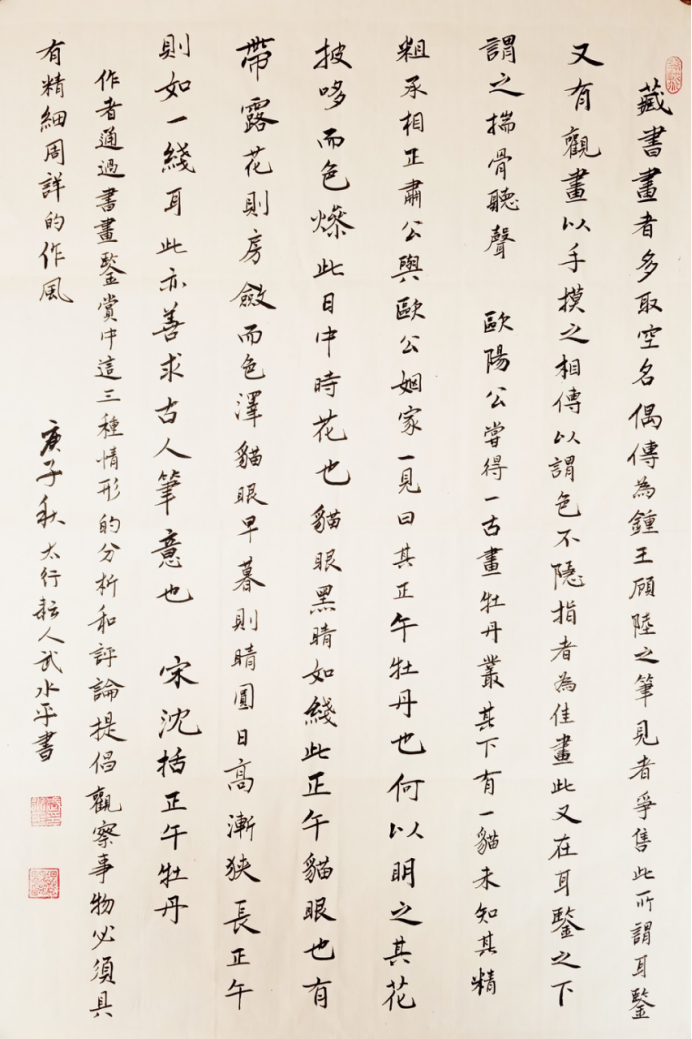 藏書畫者多取空名偶傳為鍾王顧陸之筆見者爭售此所謂耳鑒
又有觀畫以手摸之相傳以謂色不隱指者為佳畫此又在耳鑒之下
謂之揣骨聽聲 歐陽公嘗得一古畫牡丹叢其下有一貓未知其精
粗承相正肅公與歐公姻家一見曰其正午牡丹也何以明之其花
披哆而色燥此日中時花也貓眼黑睛如綫此正午貓眼也有
帶露花則房斂而色澤貓眼早暮則睛圓日高漸狹長正午
則如一綫耳此亦善求古人筆意也 宋沈括正午牡丹
作者通過書畫鑒賞中這三種情形的分析和評論提倡觀察事物必須具
有精細周詳的作風
庚子秋太行耘人武水平書